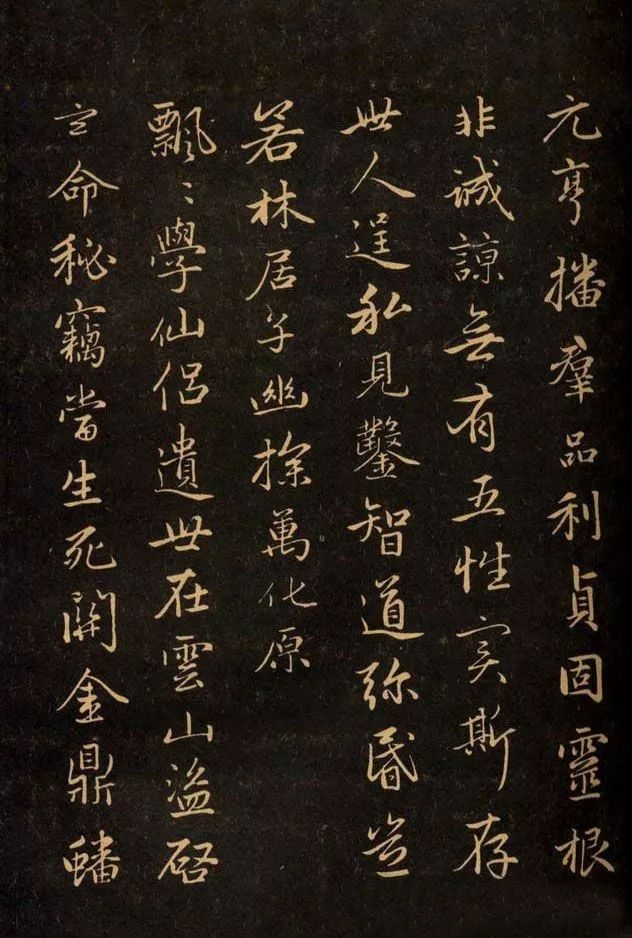 元亨播羣品利貞固靈根
非誠諒無有五性实斯存
世人逞私見鑿智道弥昏豈
若林居子幽探萬化原
飄〻學仙侶遺世在雲山盜啓
玄命秘竊當生死關金鼎蟠